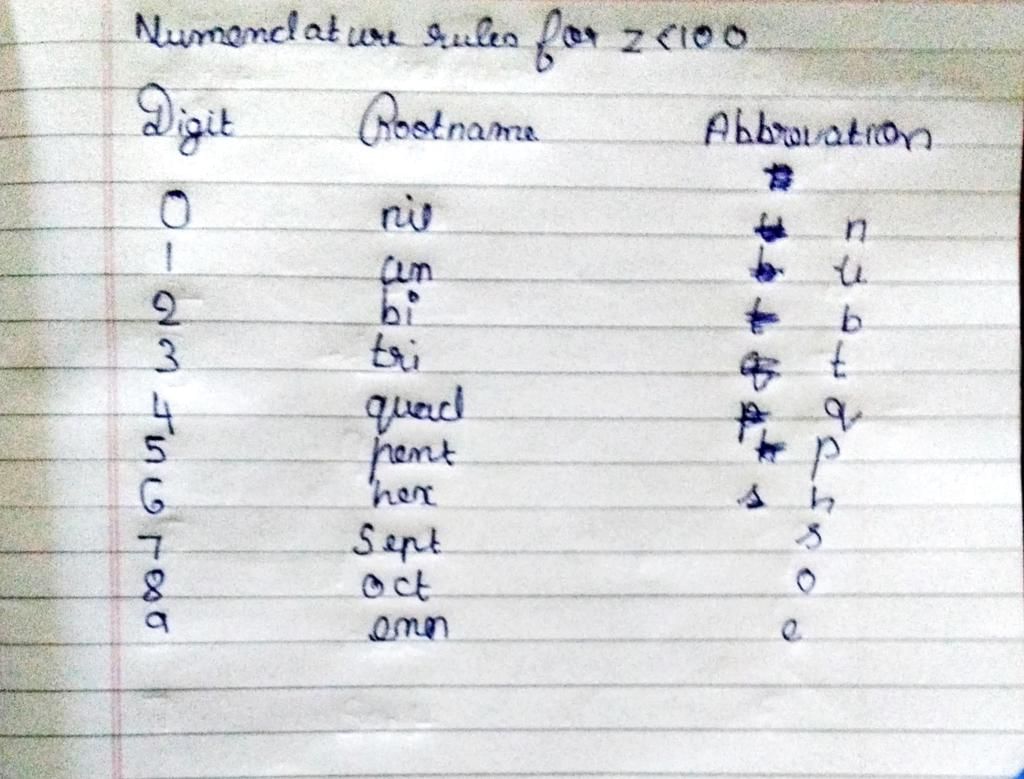 Numenclature rules for z<100
Digit Rootname Abbrevation
0 nil n
1 un u
2 bi b
3 tri t
4 quad q
5 pent p
6 hex s h
7 Sept s
8 oct o
9 enn e